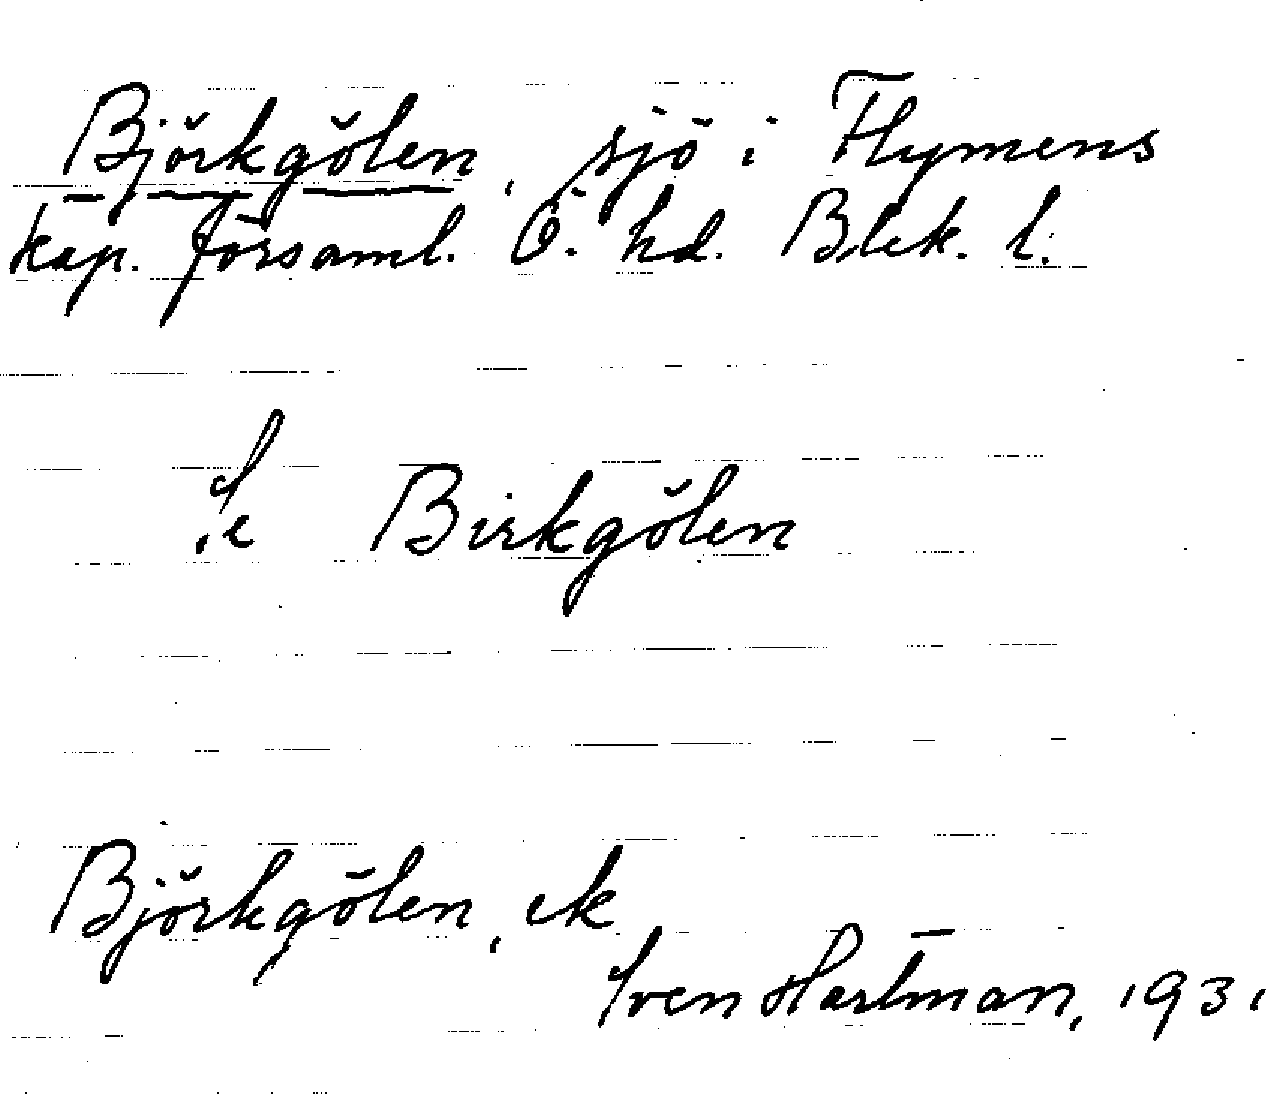 Björkgölen, sjö i Flymens
kap. församl. Ö. hd. Blek. l.
Se Birkgölen
Björkgölen, ek
Sven Hartman, 1931